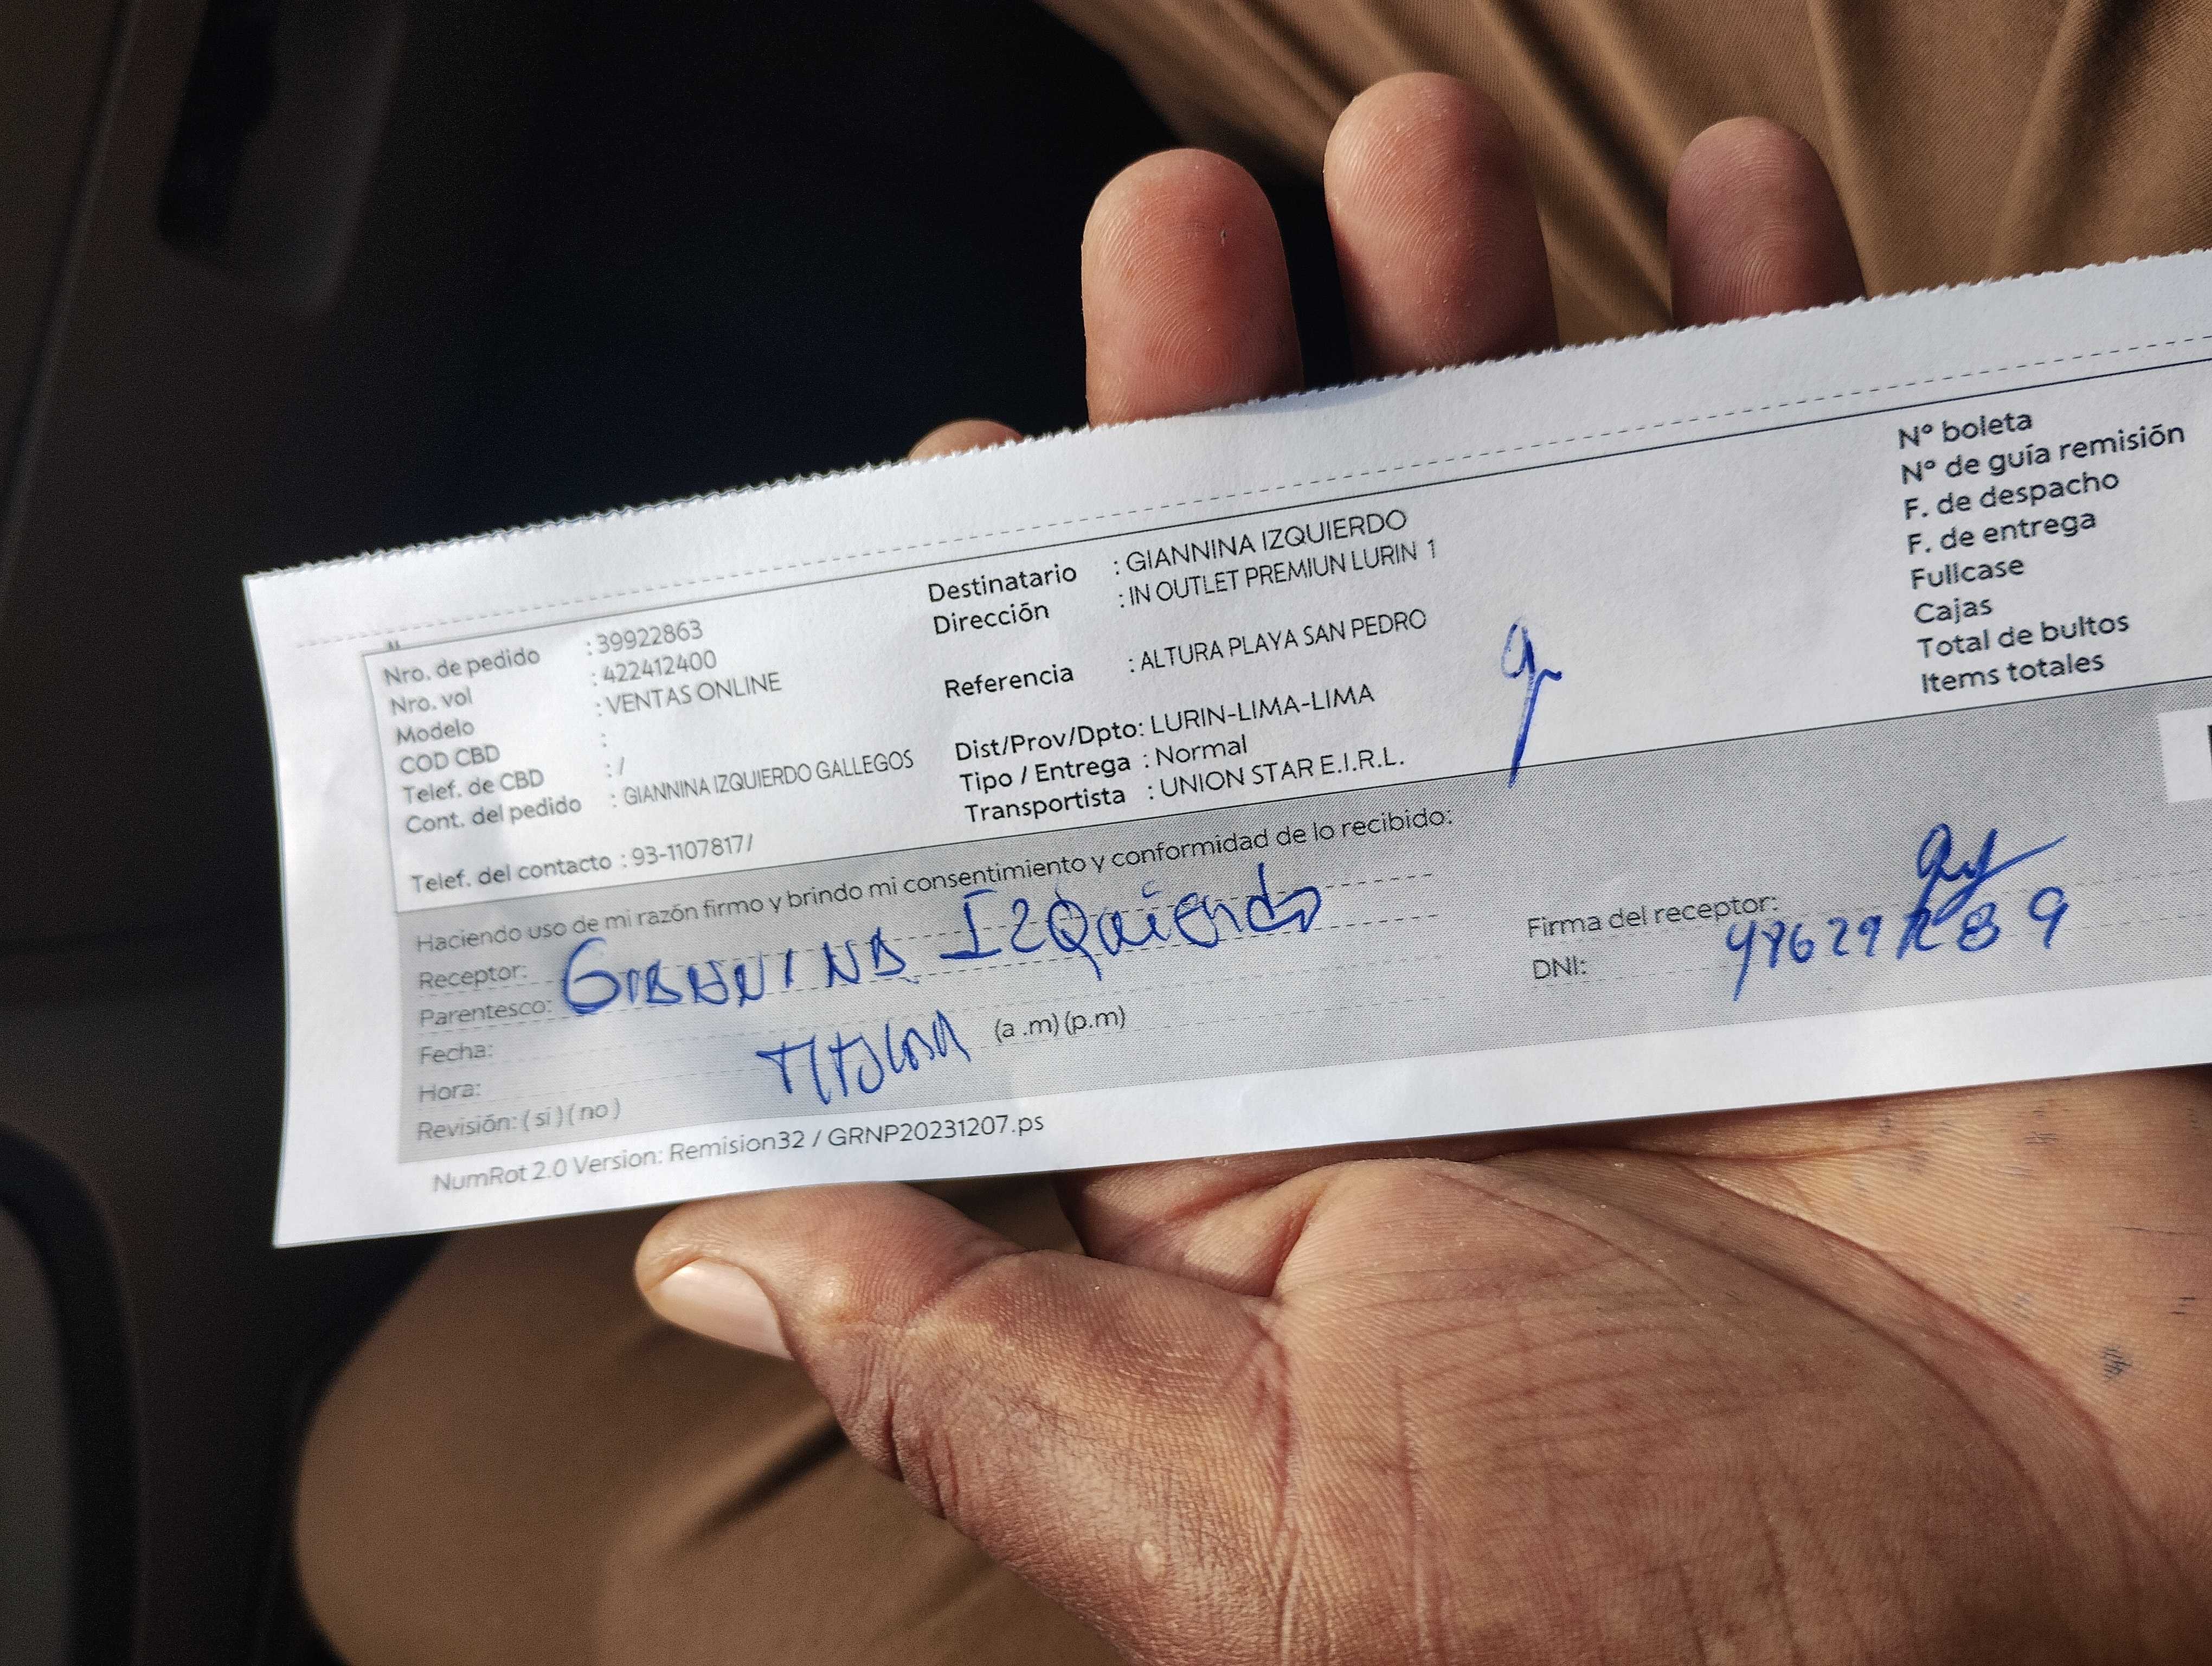 Nro. de pedido : 39922863
Nro. vol : 422412400
Modelo : VENTAS ONLINE
COD CBD :
Telef. de CBD : /
Cont. del pedido : GIANNINA IZQUIERDO GALLEGOS
Telef. del contacto : 93-1107817/
Destinatario : GIANNINA IZQUIERDO
Dirección : IN OUTLET PREMIUN LURIN 1
Referencia : ALTURA PLAYA SAN PEDRO
Dist/Prov/Dpto: LURIN-LIMA-LIMA
Tipo / Entrega : Normal
Transportista : UNION STAR E.I.R.L.
N° boleta
N° de guía remisión
F. de despacho
F. de entrega
Fullcase
Cajas
Total de bultos
Items totales
Haciendo uso de mi razón firmo y brindo mi consentimiento y conformidad de lo recibido:
Receptor: GIANNINA IZQuierdo
Parentesco:
Fecha:
TITULAR
Hora: (a .m) (p.m)
Revisión: ( si ) ( no )
Firma del receptor:
DNI:
NumRot 2.0 Version: Remision32 / GRNP20231207.ps